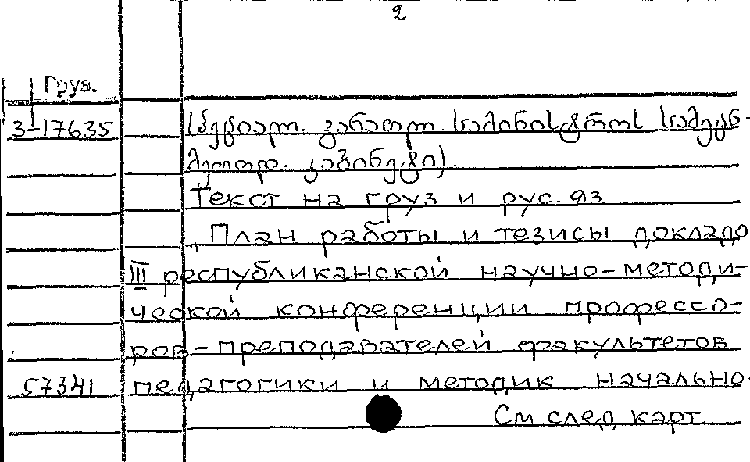 2
Груз.
3-17635 (სპეციალ. განათლ. სამინისტროს სამეცნ-
მეთოდ. კაბინეტი)
Текст на груз и рус. яз
План работы и тезисы докладо
III республиканской научно-методи-
ческой конференции профессо-
ров-преподавателей факультетов
57341 педагогики и методик начально-
См след карт.